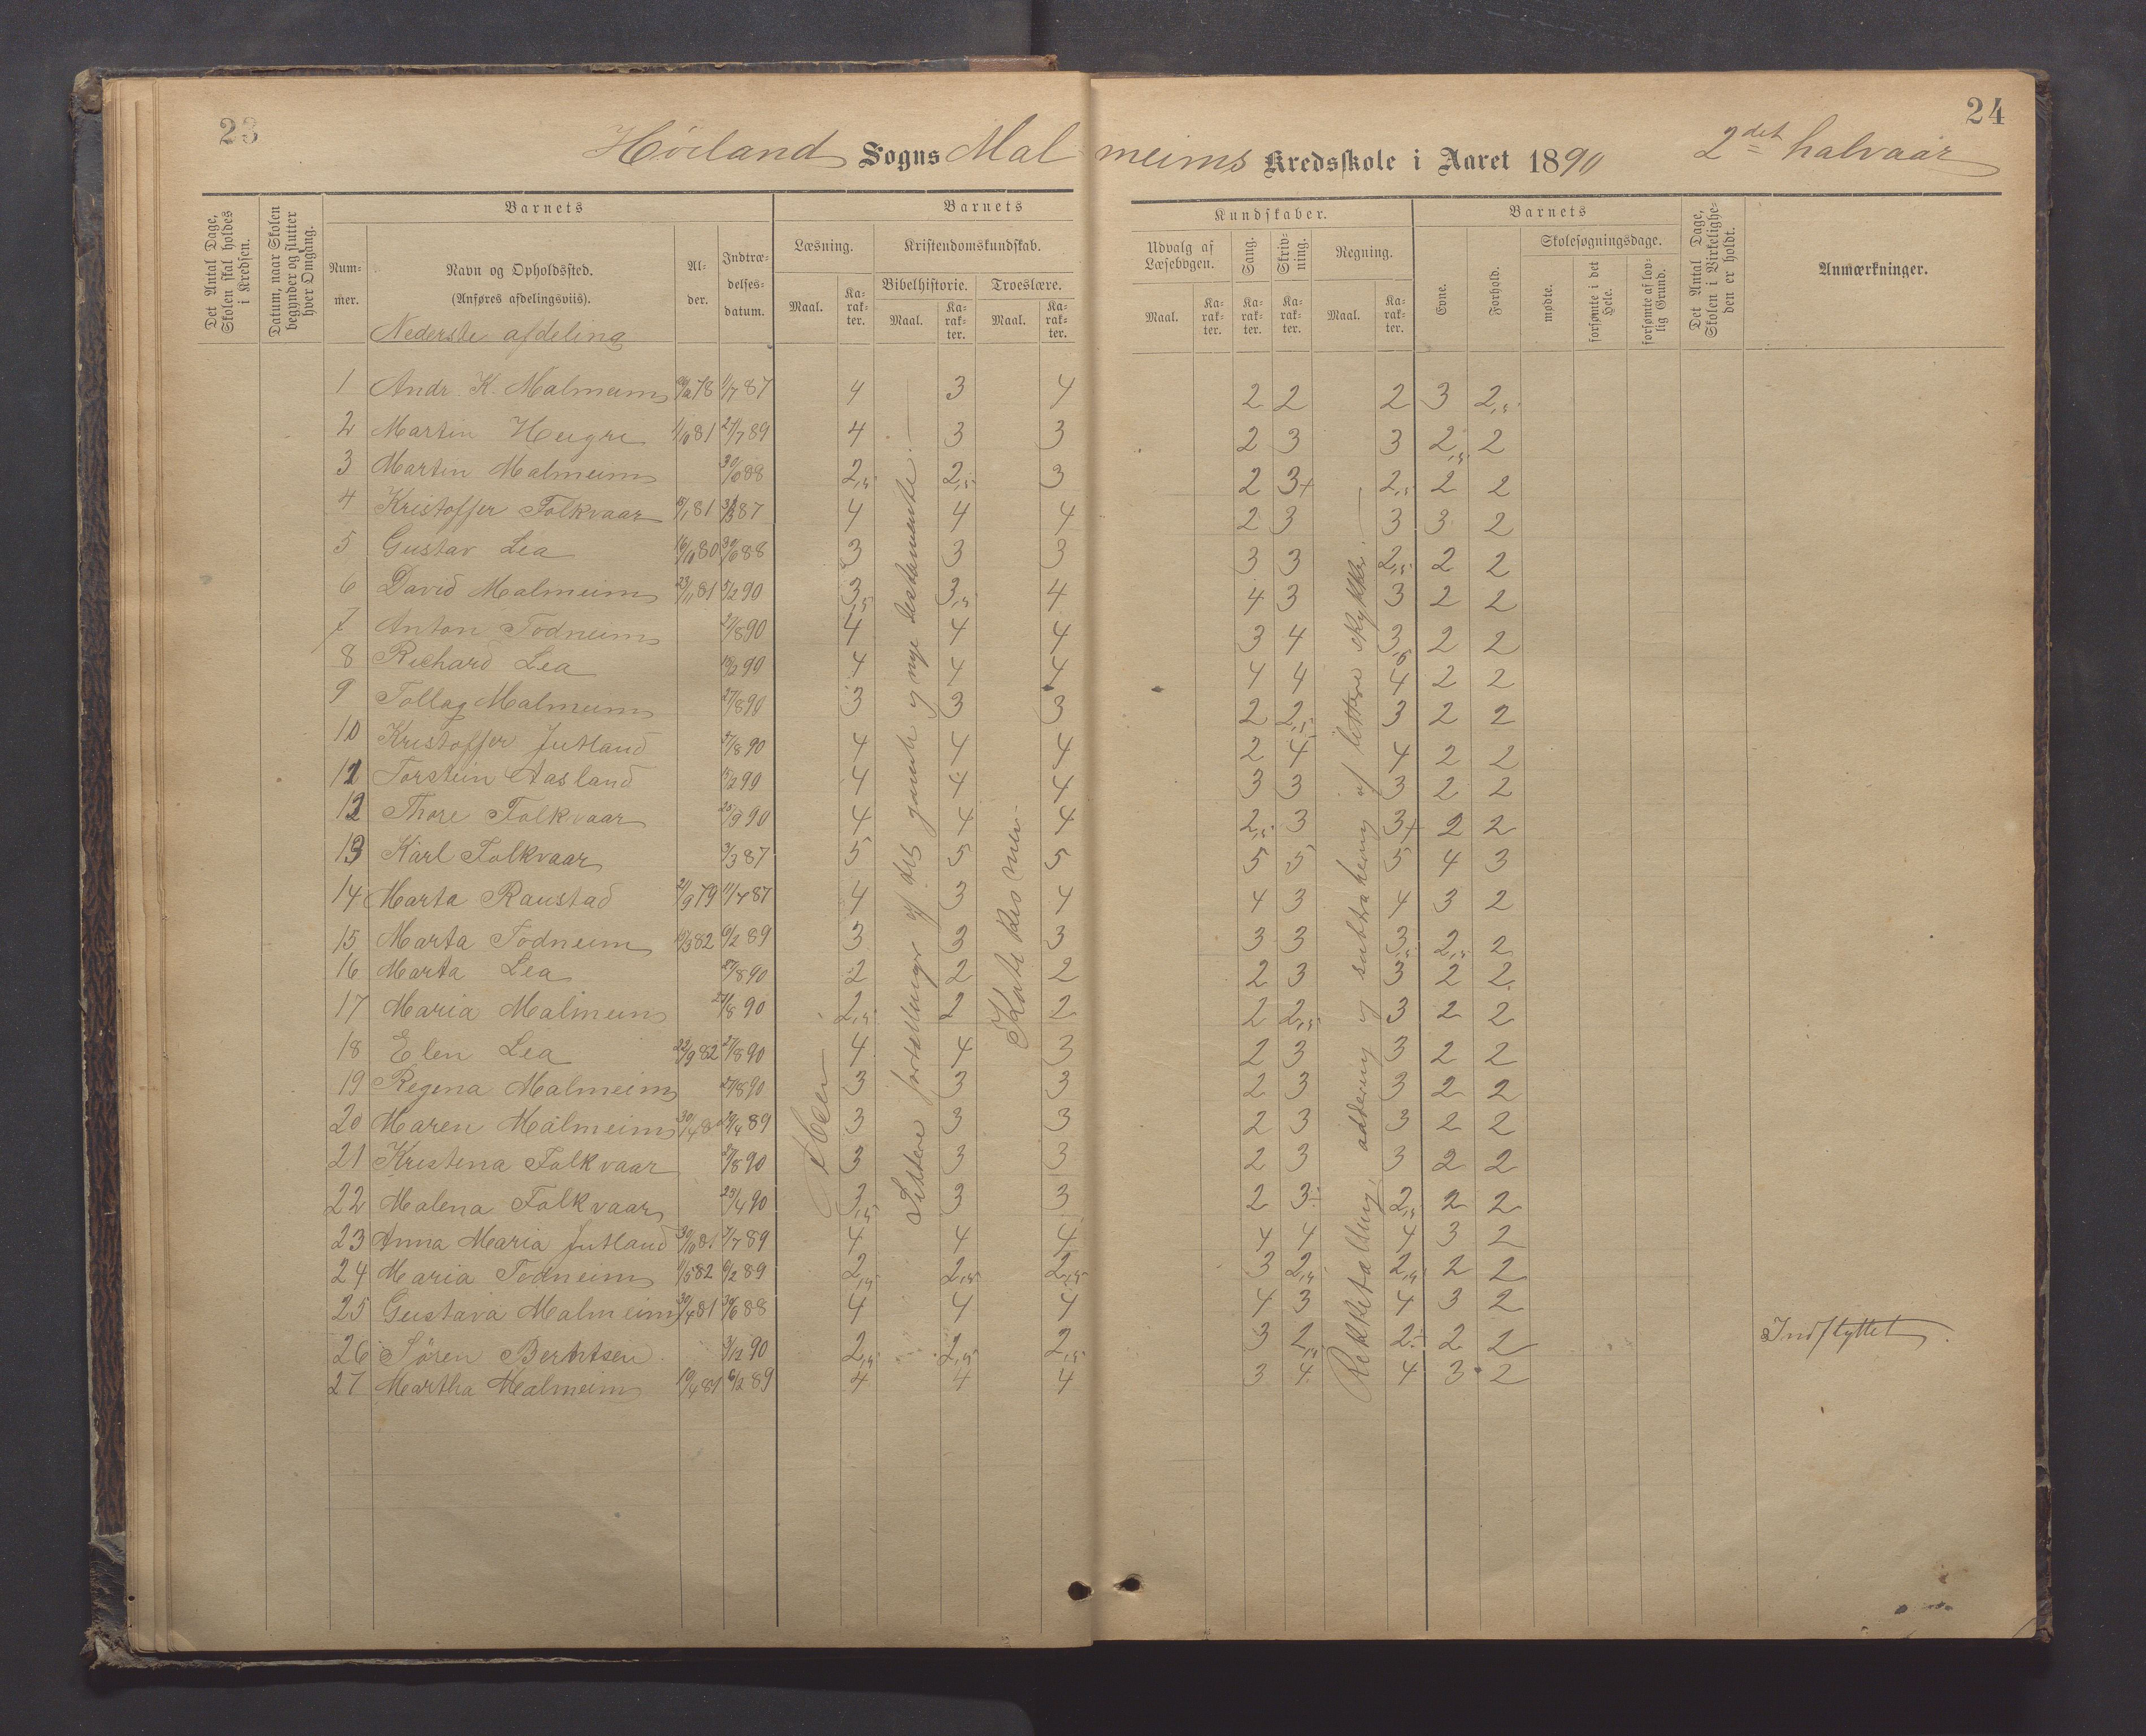 23
24
Höiland Sogns Malmeims Kredsskole i Aaret 1890 2det halvaar
Det Antal Dage, Skolen skal holdes i Kredsen.
Datum, naar Skolen begynder og slutter hver Omgang.
Barnets
Nummer.
Navn og Opholdssted. (Anføres afdelingsviis).
Alder.
Indtrædelsesdatum.
Barnets Kundskaber.
Læsning.
Maal. Karakter.
Kristendomskundskab.
Bibelhistorie. Troeslære.
Maal. Karakter. Maal. Karakter.
Udvalg af Læsebogen.
Maal. Karakter.
Sang. Karakter.
Skrivning. Karakter.
Regning.
Maal. Karakter.
Barnets
Evne.
Forhold.
Skolesøgningsdage.
mødte.
forsømte i det Hele.
forsømte af lovlig Grund.
Det Antal Dage, Skolen i Virkeligheden er holdt.
Anmærkninger.
Nederste afdeling
1 Andr. K. Malmeim 78 1/7 87 4 3 4 2 2 2 3 2,5
2 Martin Heigre 81 27/7 89 4 3 3 2 3 3 2,5 2
3 Martin Malmeim 30/6 88 2,5 2,5 3 2 3+ 2,5 2 2
4 Kristoffer Folkvaar 81 87 4 4 4 2 3 3 3 2
5 Gustav Lea 16/10 80 30/6 88 3 3 3 3 3 2,5 2 2
6 David Malmeim 23/11 81 5/2 90 3,5 3,5 4 4 3 3 2 2
7 Anton Todneim 27/8 90 4 4 4 3 4 3,5 2 2
8 Richard Lea 90 4 4 4 4 4 4 2 2
9 Tollag Malmeim 27/8 90 3 3 3 2 2,5 3 2 2
10 Kristoffer Jutland 27/8 90 4 4 4 2 4 4 2 2
11 Torstein Aasland 90 4 4 4 3 3 3 2 2
12 Thore Folkvaar 25/9 90 4 4 4 2,5 3 3+ 2 2
13 Karl Folkvaar 3/3 87 5 5 5 5 5 5 4 3
14 Marta Raustad 21/9 79 11/7 87 4 3 4 4 3 4 3 2
15 Marta Todneim 82 6/2 89 3 3 3 3 3 3 2,5 2
16 Marta Lea 27/8 90 2 2 2 2 3 3 2 2
17 Maria Malmeim 27/8 90 2,5 2 2 2 2,5 3 2 2
18 Elen Lea 22/9 82 27/8 90 4 4 3 2 3 3 2 2
19 Regina Malmeim 27/8 90 3 3 3 2 3 3 2 2
20 Maren Malmeim 30/4 8 89 3 3 3 2 3 3 2 2
21 Kristina Folkvaar 27/8 90 3 3 3 2 3 3 2 2
22 Malena Folkvaar 23/4 90 3,5 3 3 2 3 2,5 2 2
23 Anna Maria Jutland 30/10 81 7/7 89 4 4 4 4 4 4 3 2
24 Maria Todneim 82 6/2 89 2,5 2,5 2,5 3 2,5 2,5 2 2
25 Gustava Malmeim 30/4 81 30/6 88 4 4 4 4 3 4 3 2
26 Sören Berntsen 3/12 90 2,5 2,5 2,5 3 2,5 2 2 2 Indflyttet.
27 Martha Malmeim 10/4 81 6/2 89 4 4 4 3 4 4 3 2
Abcen
Lettere fortællinger af det gamle og nye testamente.
Katekismen.
Rekketælling, addering og subtrahering af lettere stykker.